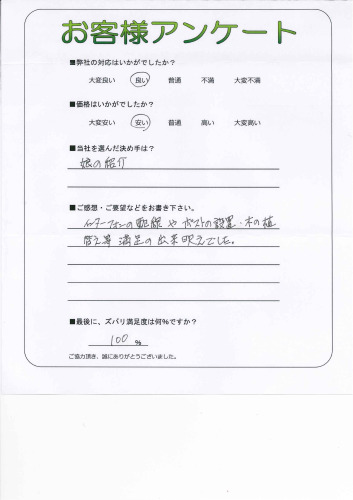 お客様アンケート
■弊社の対応はいかがでしたか？
大変良い 良い 普通 不満 大変不満
■価格はいかがでしたか？
大変安い 安い 普通 高い 大変高い
■当社を選んだ決め手は？
娘の紹介
■ご感想・ご要望などをお書き下さい。
インターフォンの配線やポストの設置・木の植
替え等満足の出来映えでした。
■最後に、ズバリ満足度は何%ですか？
100 %
ご協力頂き、誠にありがとうございました。